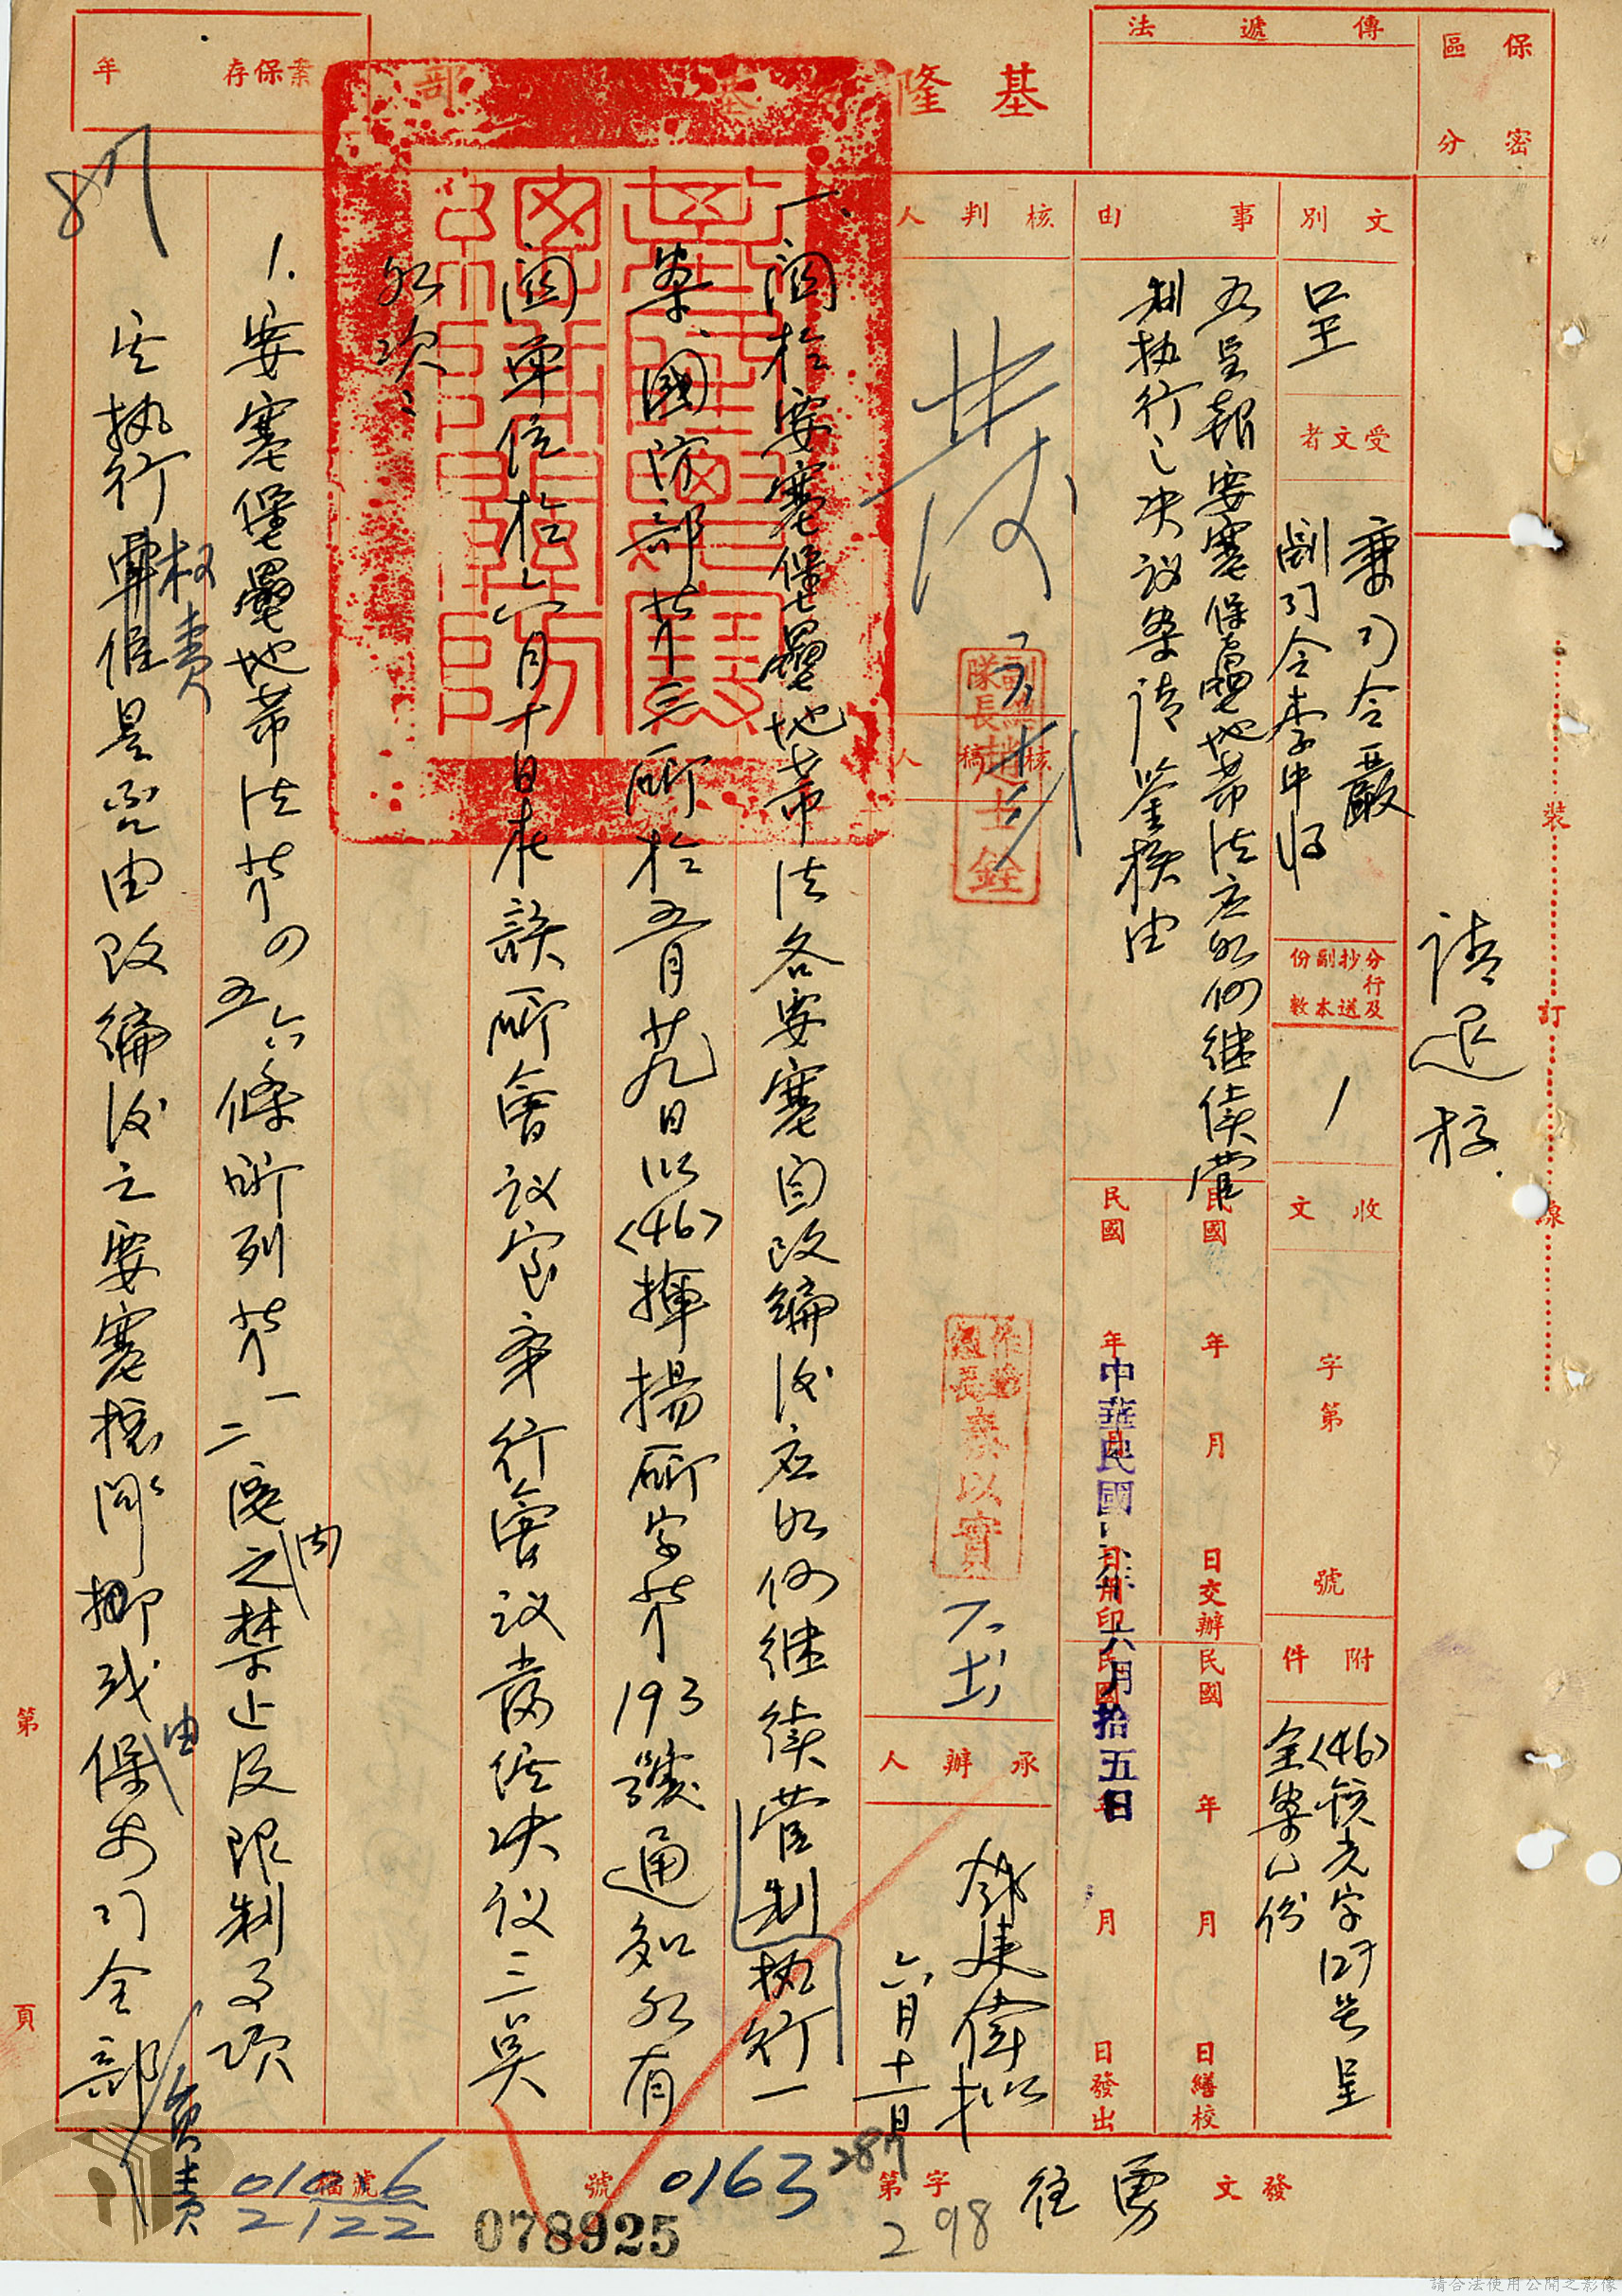 保密
區分
傳遞法
基隆
案保存
年
請退校
文別
呈
受文者
兼司令嚴
副司令李中將
分行及抄送副本份數
1
收文
字第
號
附件
(46)
呈
全案一份
事由
為呈報要塞堡壘地帶法應如何繼續管
制執行之決議案請鑒核由
民國 年 月 日交辦
民國 年 月 日繕校
民國 年 月 日用印
中華民國
六月拾五日
民國 年 月 日發出
核判人
核稿人
副 隊長趙士銓
以實
承辦人
六月十一日
一、關於要塞堡壘地帶法各要塞自改編後應如何繼續管制執行一
案、國防部第三廳於五月廿九日以(46)揮揚廳字第193號通知各有
關單位於六月十日在該廳會議室舉行會議當經決議三點
如次：
1. 要塞堡壘地帶法第四五六條所列第一二區內之禁止及限制事項
其執行權責單位是否由改編後之要塞機關抑或由保安司令部
負責
裝
訂
線
第
頁
發文
勇
字第
0163
號
287
298
078925
檔號
2122
87
請合法使用公開之影像